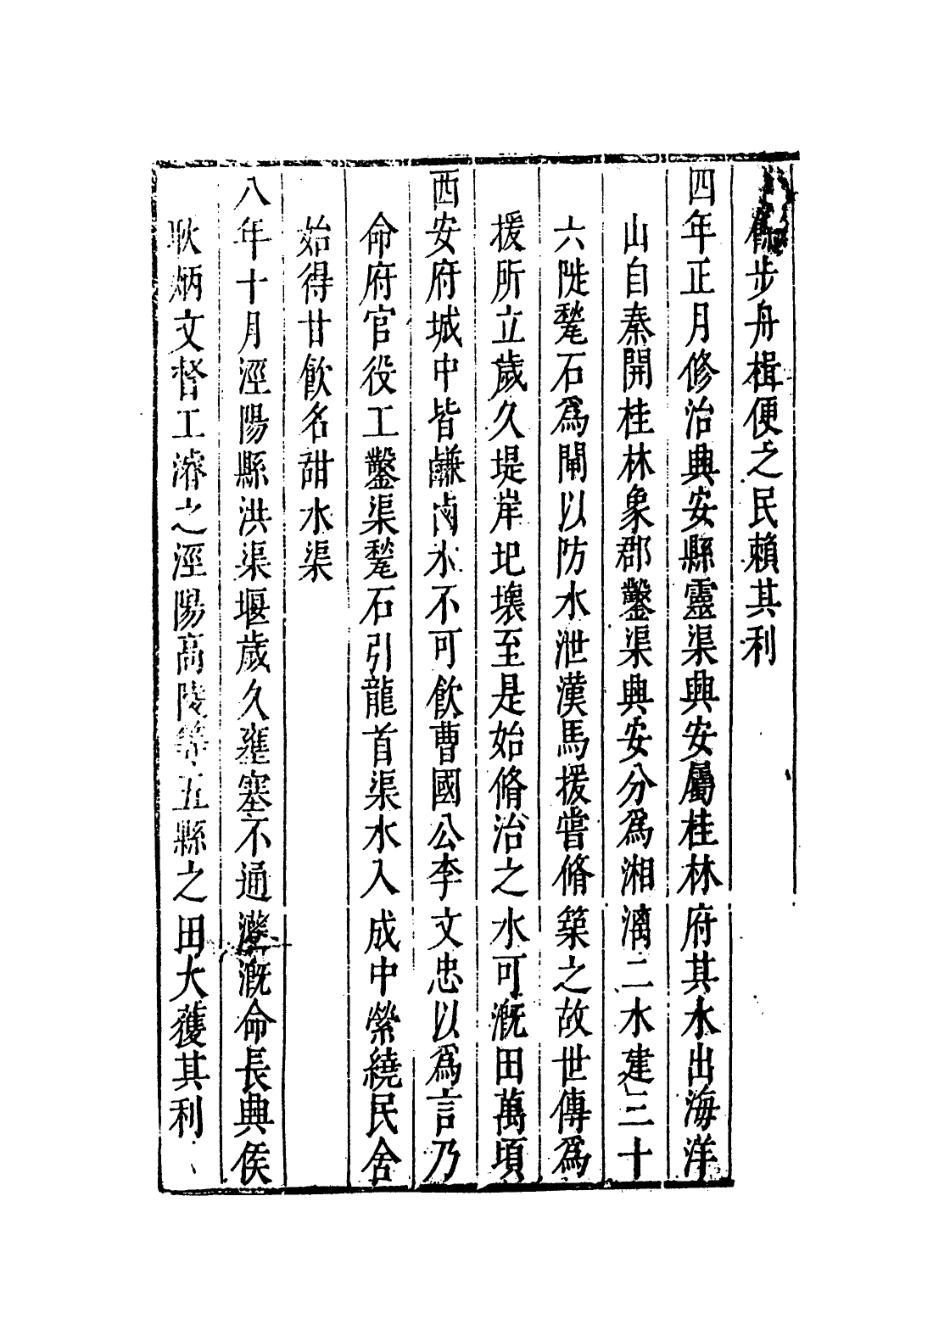 步舟楫便之民賴其利
四年正月修治興安縣靈渠興安屬桂林府其水出海洋
山自秦開桂林象郡鑿渠興安分爲湘漓二水建三十
六陡甃石爲閘以防水泄漢馬援嘗脩築之故世傳爲
援所立歲久堤岸圮壞至是始脩治之水可溉田萬頃
西安府城中皆鹻鹵水不可飲曹國公李文忠以爲言乃
命府官役工鑿渠甃石引龍首渠水入成中縈繞民舍
始得甘飲名甜水渠
八年十月涇陽縣洪渠堰歲久壅塞不通灌溉命長興侯
耿炳文督工濬之涇陽高陵等五縣之田大獲其利